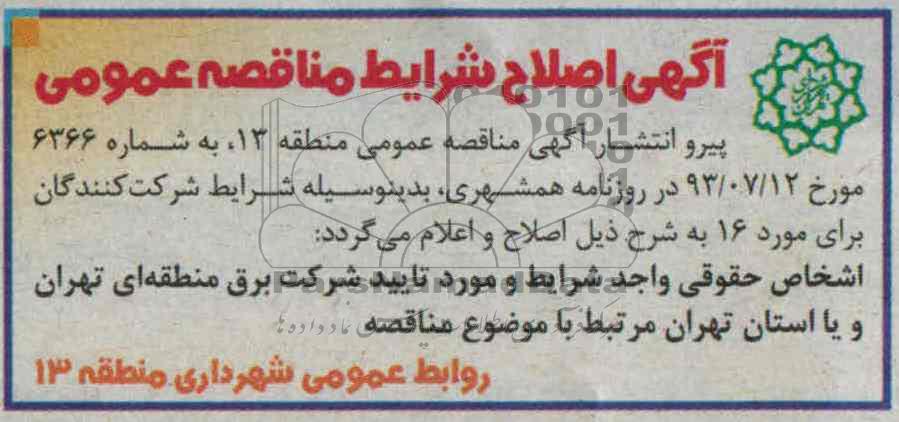 آگهی اصلاح شرایط مناقصه عمومی
پیرو انتشار آگهی مناقصه عمومی منطقه ۱۳، به شماره ۶۳۶۶
مورخ ۹۳/۰۷/۱۲ در روزنامه همشهری، بدینوسیله شرایط شرکت‌کنندگان
برای مورد ۱۶ به شرح ذیل اصلاح و اعلام می‌گردد:
اشخاص حقوقی واجد شرایط و مورد تایید شرکت برق منطقه‌ای تهران
و یا استان تهران مرتبط با موضوع مناقصه
روابط عمومی شهرداری منطقه ۱۳